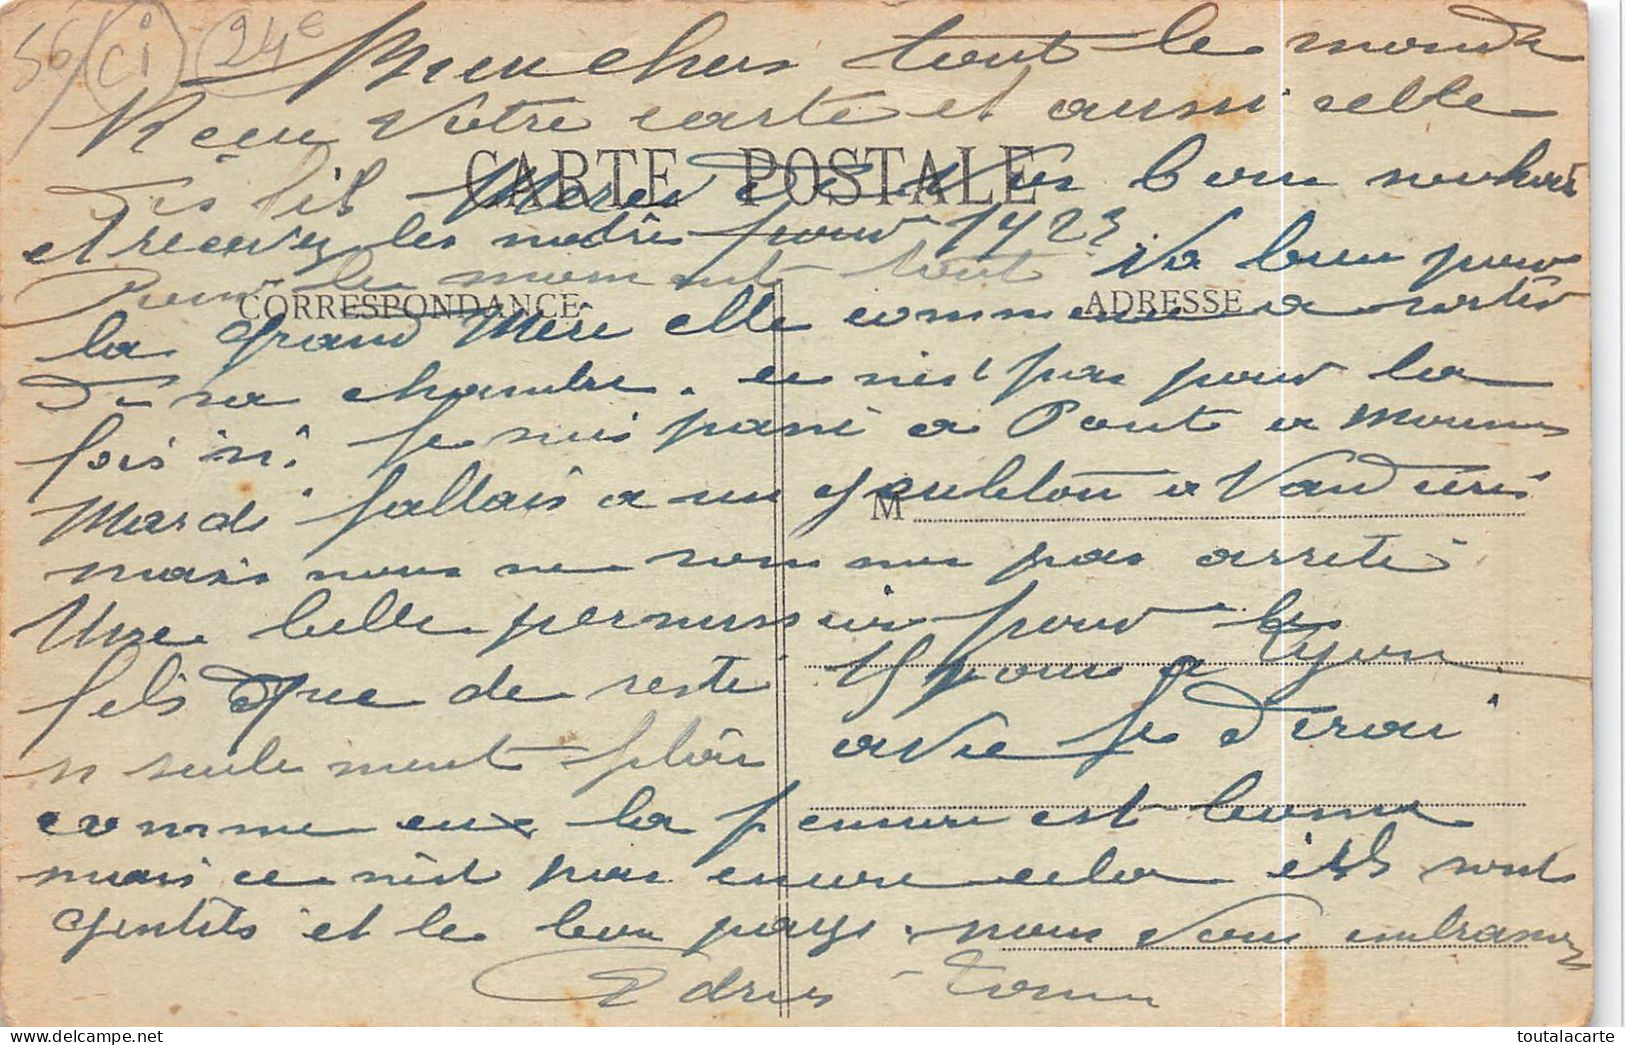 56 Ci 24e
cher tout le monde
Recu votre carte et aussi celle
des fils Merci de Vos bons souhaits
CARTE POSTALE
et recevez les notres pour 1923
Pour le moment tout va bien pour
CORRESPONDANCE
ADRESSE
la grand Mere elle commence a sortir
de sa chambre. ce n'est pas pour la
fois ni. Je suis passé a Pont a Mousson
Mardi j'allais a un gueuleton a Vandières
M
mais nous ne sommes pas arreté
Une belle permission pour les
fils que de resté 15 jours a Lyon
seulement avec je dirai
comme eux la est bonne
mais ce n'est pas encore cela ils sont
gentils et le bon pays. nous vous embrassons
toutalacarte